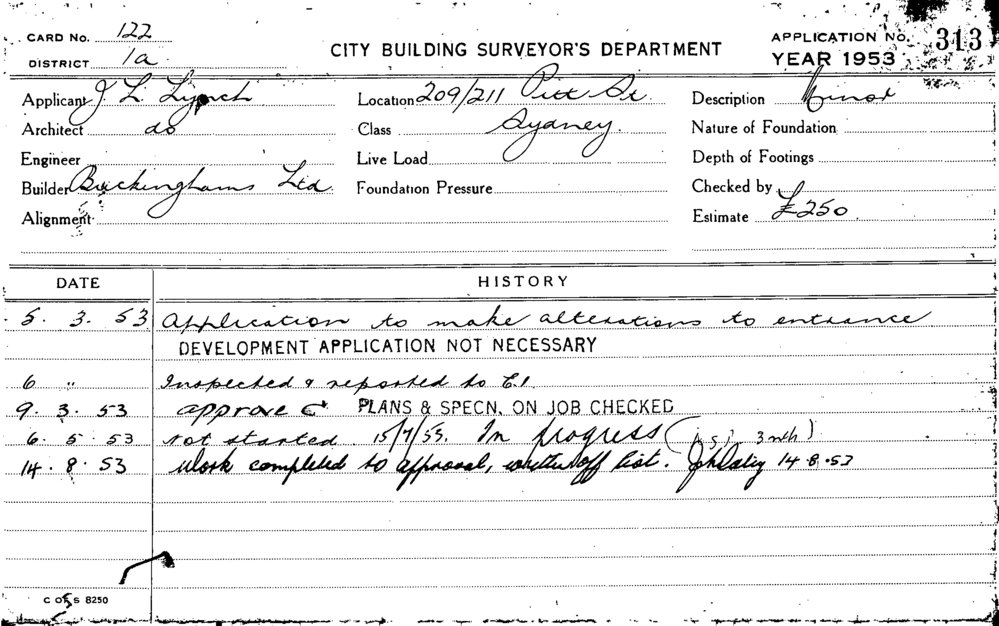 CARD No. 122
DISTRICT 1a
CITY BUILDING SURVEYOR'S DEPARTMENT
APPLICATION No. 313
YEAR 1953
Applicant J L Lynch
Location 209/211 Pitt St.
Description Minor
Architect do
Class Sydney.
Nature of Foundation
Engineer
Live Load
Depth of Footings
Builder Buckinghams Ltd.
Foundation Pressure
Checked by
Alignment
Estimate £250
DATE HISTORY
5. 3. 53 Application to make alterations to entrance
DEVELOPMENT APPLICATION NOT NECESSARY
6 " Inspected & reported to C.I.
9. 3. 53 approve PLANS & SPECN. ON JOB CHECKED
6. 5. 53 Not started. 15/7/53. In progress ( 3 mth)
14. 8. 53 Work completed to approval, written off list. 14.8.53
C of S 8250